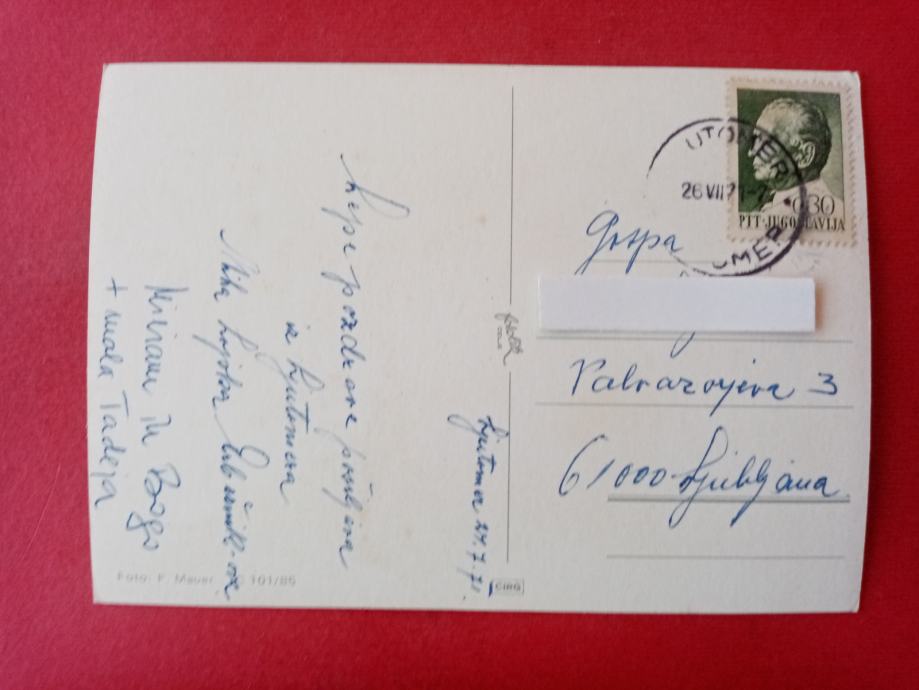 Lepe pozdrave pošiljava
iz Ljutomera
Miha Lojzka
Miriam in Bogo
+ mala Tadeja
Ljutomer 24.7.71.
Foto: F. Mauer 101/85
CIRG
Gospa
3
61000 Ljubljana
LJUTOMER
26 VII 71-7
0.30
PTT-JUGOSLAVIJA